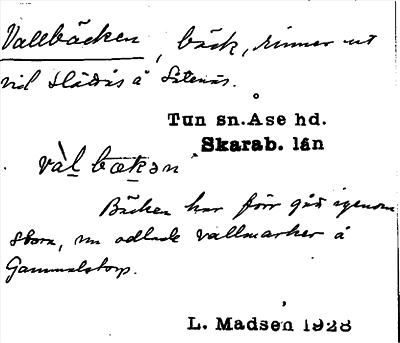 Vallbäcken, bäck, rinner ut
vid Slädås å Såtenäs.
Tun sn. Åse hd.
Skarab. län
val bækən
Bäcken har förr gått igenom
stora, nu odlade vallmarker å
Gammalstorp.
L. Madsen 1928